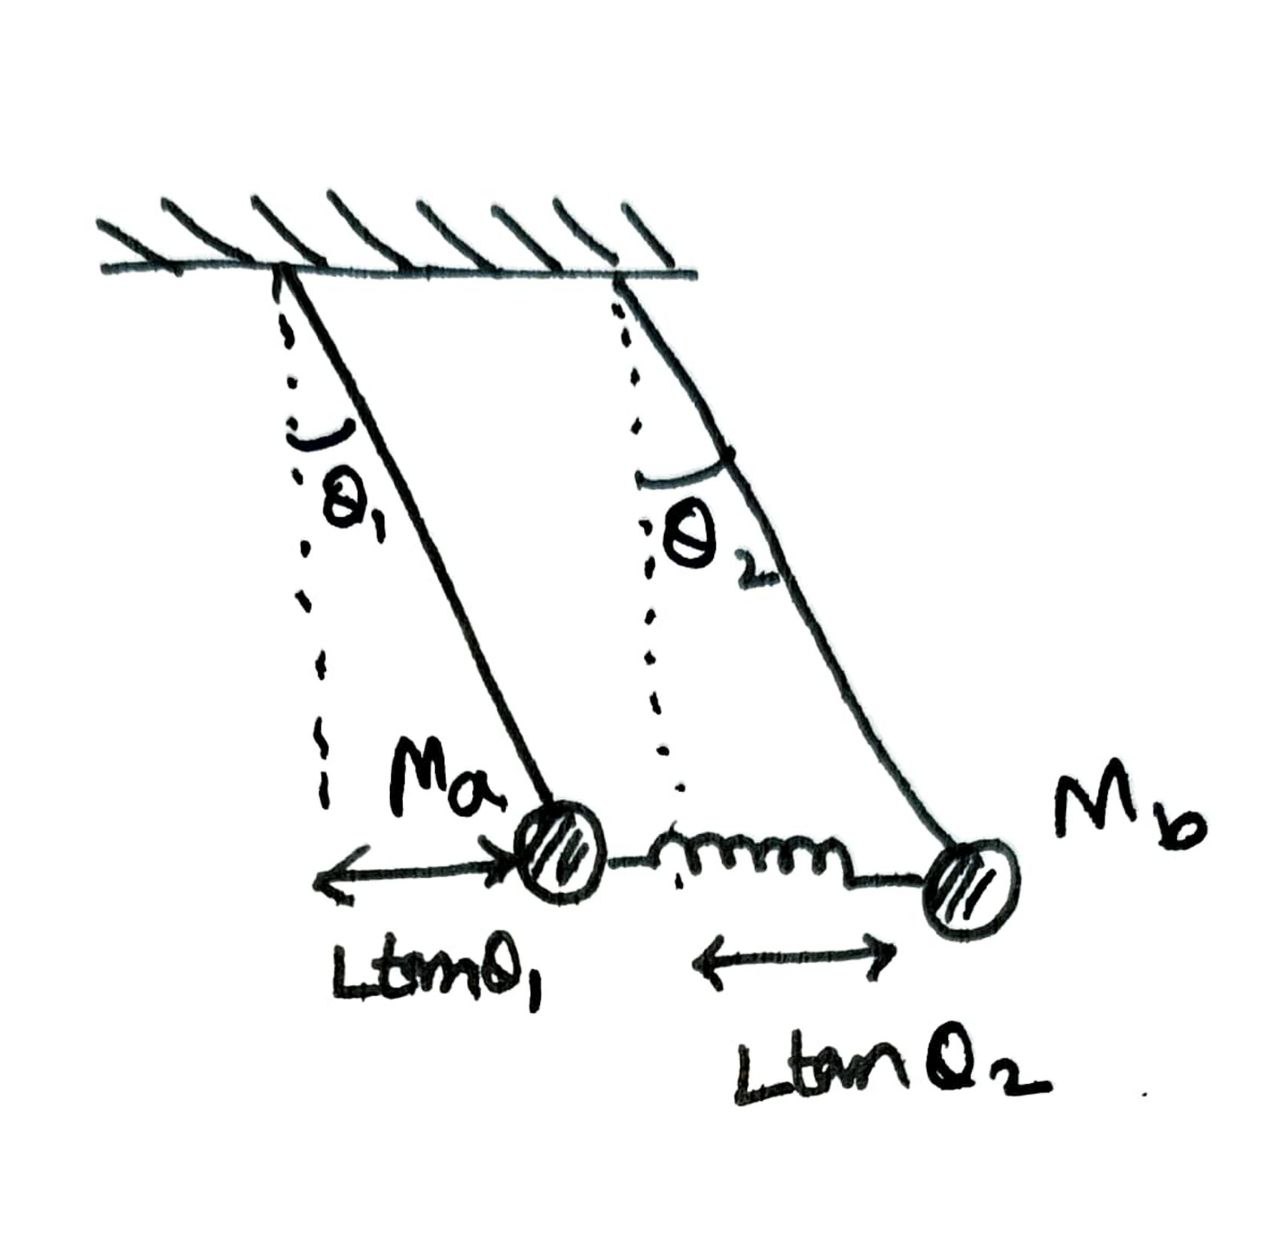 θ₁
θ₂
Ma
Mb
Ltanθ₁
Ltanθ₂